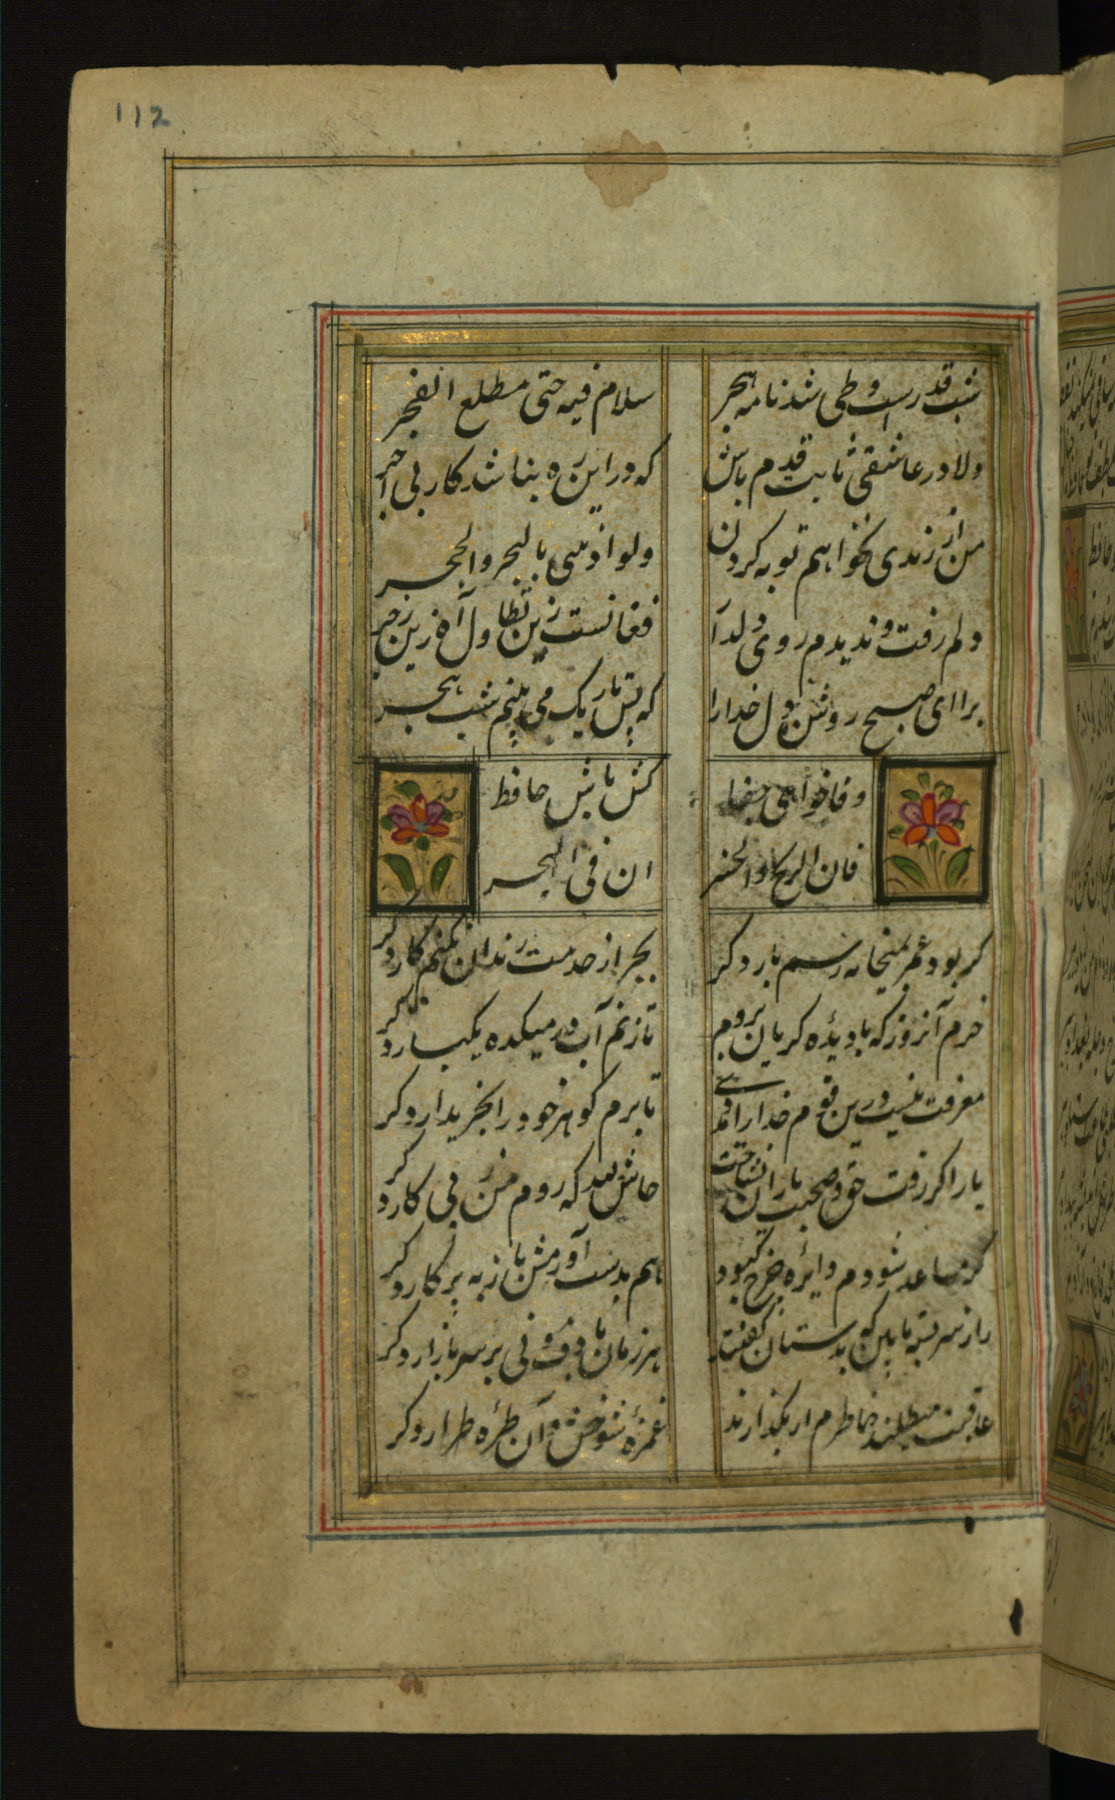 112
شب قدر است و طی شد نامه هجر سلام فیه حتی مطلع الفجر
دلا در عاشقی ثابت قدم باش که در این ره نباشد کار بی اجر
من از رندی نخواهم توبه کردن ولو اذیتنی بالهجر والحجر
دلم رفت و ندیدم روی دلدار فغانست زین تطاول آه زین زجر
برا ای صبح روشن دل خدا را که بس تاریک می بینم شب هجر
وفا خواهی جفا کش باش حافظ
فان الربح والخسران فی الهجر
گر بود عمر بمیخانه رسم بار دگر بجز از خدمت رندان نکنم کار دگر
خرم آنروز که با دیده گریان بروم تا زنم آب در میکده یکبار دگر
معرفت نیست درین قوم خدا را مددی تا برم گوهر خود را بخریدار دگر
یار اگر رفت و حق صحبت یاران نشناخت حاش لله که روم من ز پی کار دگر
گر مساعد شودم دایره چرخ کبود هم بدست آورمش باز به پرگار دگر
راز سربسته ما بین که بدستان گفتند هر زمان با دف و نی بر سر بازار دگر
عافیت میطلبد خاطرم ار بگذارند غمزه شوخش و آن طره طرار دگر